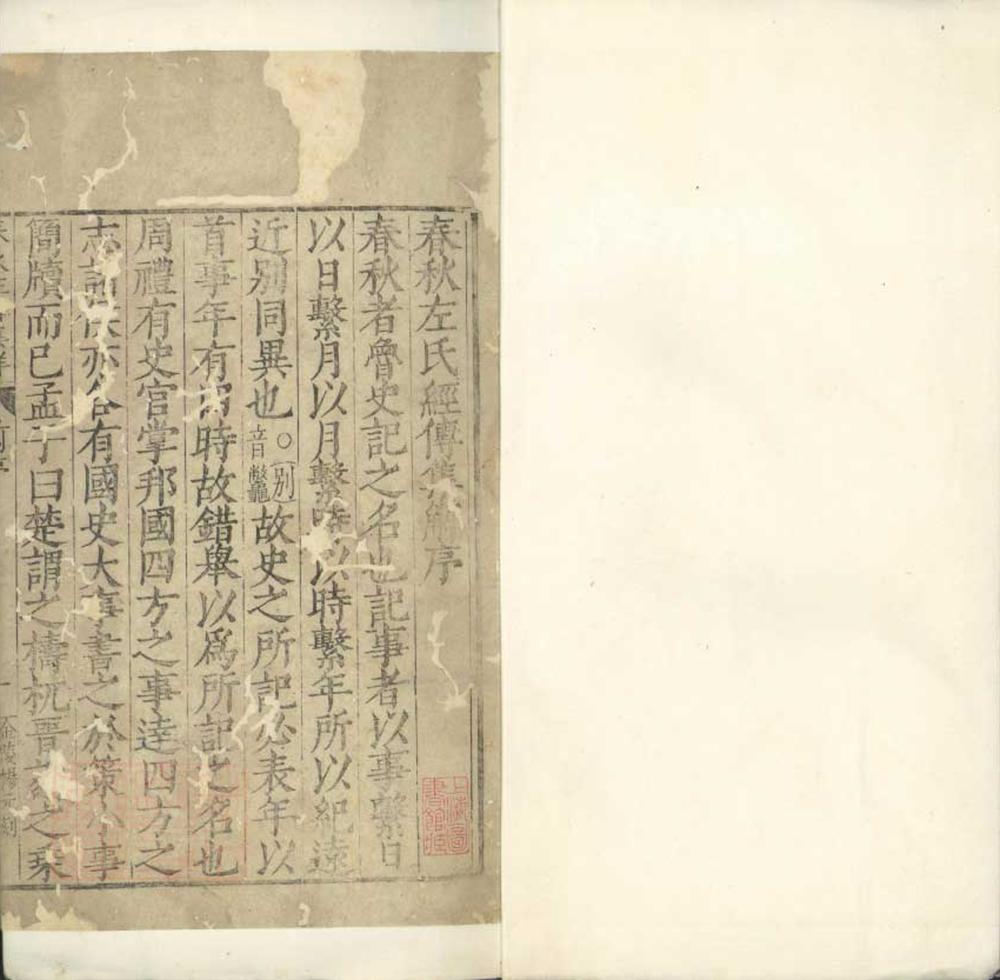 春秋左氏經傳集解序
春秋者魯史記之名也記事者以事繫日
以日繫月以月繫時以時繫年所以紀遠
近別同異也○別音鼈故史之所記必表年以
首事年有四時故錯舉以爲所記之名也
周禮有史官掌邦國四方之事逹四方之
志諸侯亦各有國史大事書之於策小事
簡牘而已孟子曰楚謂之檮杌晉謂之乘
上海圖書館藏